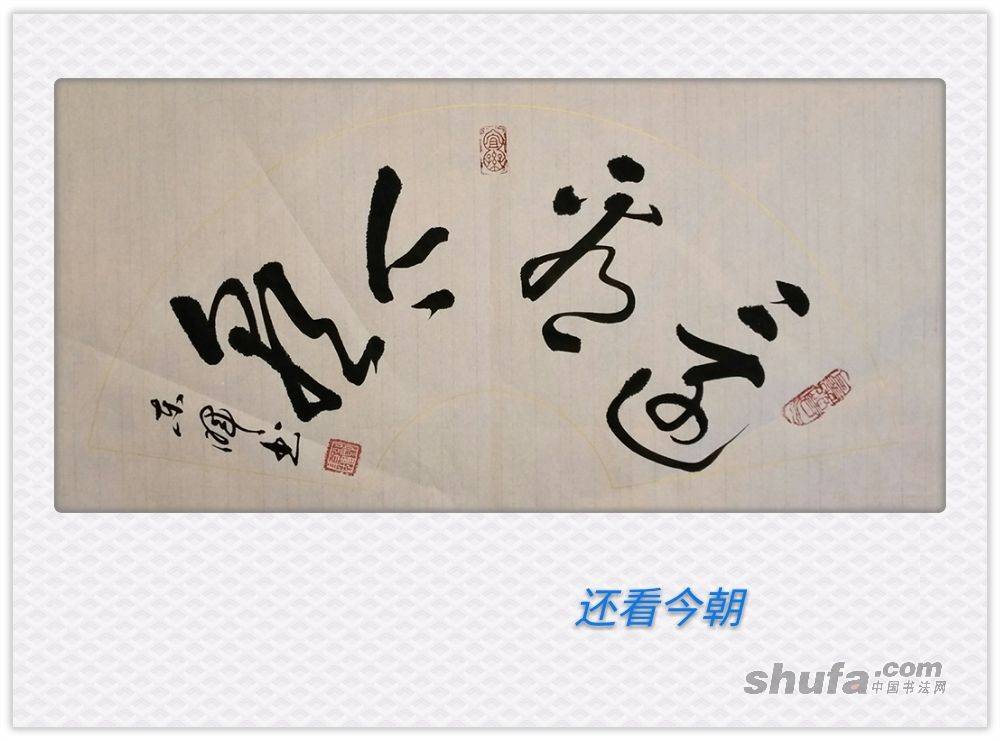 还看今朝
还看今朝
shufa.com
中国书法网